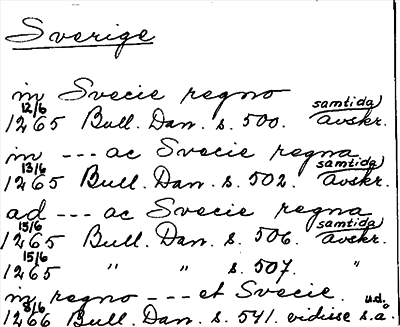 Sverige
in Svecie regno
12/6 samtida
1265 Bull. Dan. s. 500. avskr.
in --- ac Svecie regna
13/6 samtida
1265 Bull. Dan. s. 502. avskr.
ad --- ac Svecie regna
15/6 samtida
1265 Bull. Dan. s. 506. avskr.
15/6
1265 " " s. 507. "
in regno --- et Svecie u.d.
8/6
1266 Bull. Dan. s. 541. vidisse s.å.